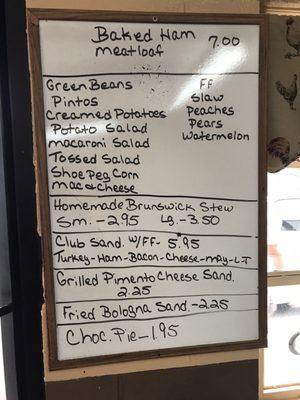 Baked Ham 7.00
meatloaf
Green Beans FF
Pintos Slaw
Creamed Potatoes Peaches
Potato Salad Pears
macaroni Salad Watermelon
Tossed Salad
Shoe Peg Corn
mac & cheese
Homemade Brunswick Stew
Sm. - 2.95 Lg. - 3.50
Club Sand. W/FF - 5.95
Turkey-Ham-Bacon-Cheese-may-L-T
Grilled Pimento Cheese Sand.
2.25
Fried Bologna Sand. - 2.25
Choc. Pie - 1.95